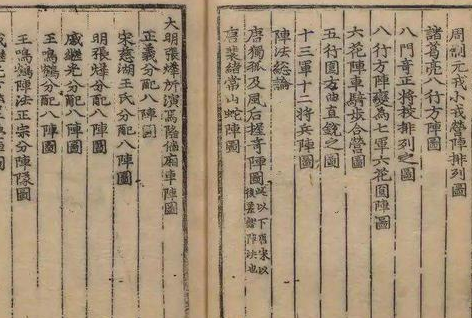 周制元戎小戎營陣排列圖
諸葛亮八行方陣圖
八門奇正將校排列之圖
八行方陣變為七軍六花圓陣圖
六花陣車騎步合營圖
五行圓方曲直銳之圖
十三軍十二將兵陣圖
陣法總論
唐獨孤及風后握奇陣圖此以下唐宋以後並謬陣法也
唐裴緒常山蛇陣圖
大明張燁所演萬陰偹廂車陣圖
正義分配八陣圖
宋慈湖王氏分配八陣圖
明張燁分配八陣圖
戚繼光分配八陣圖
王鳴鶴分配八陣圖
王鳴鶴陣法正宗分陣隊圖
戚繼光